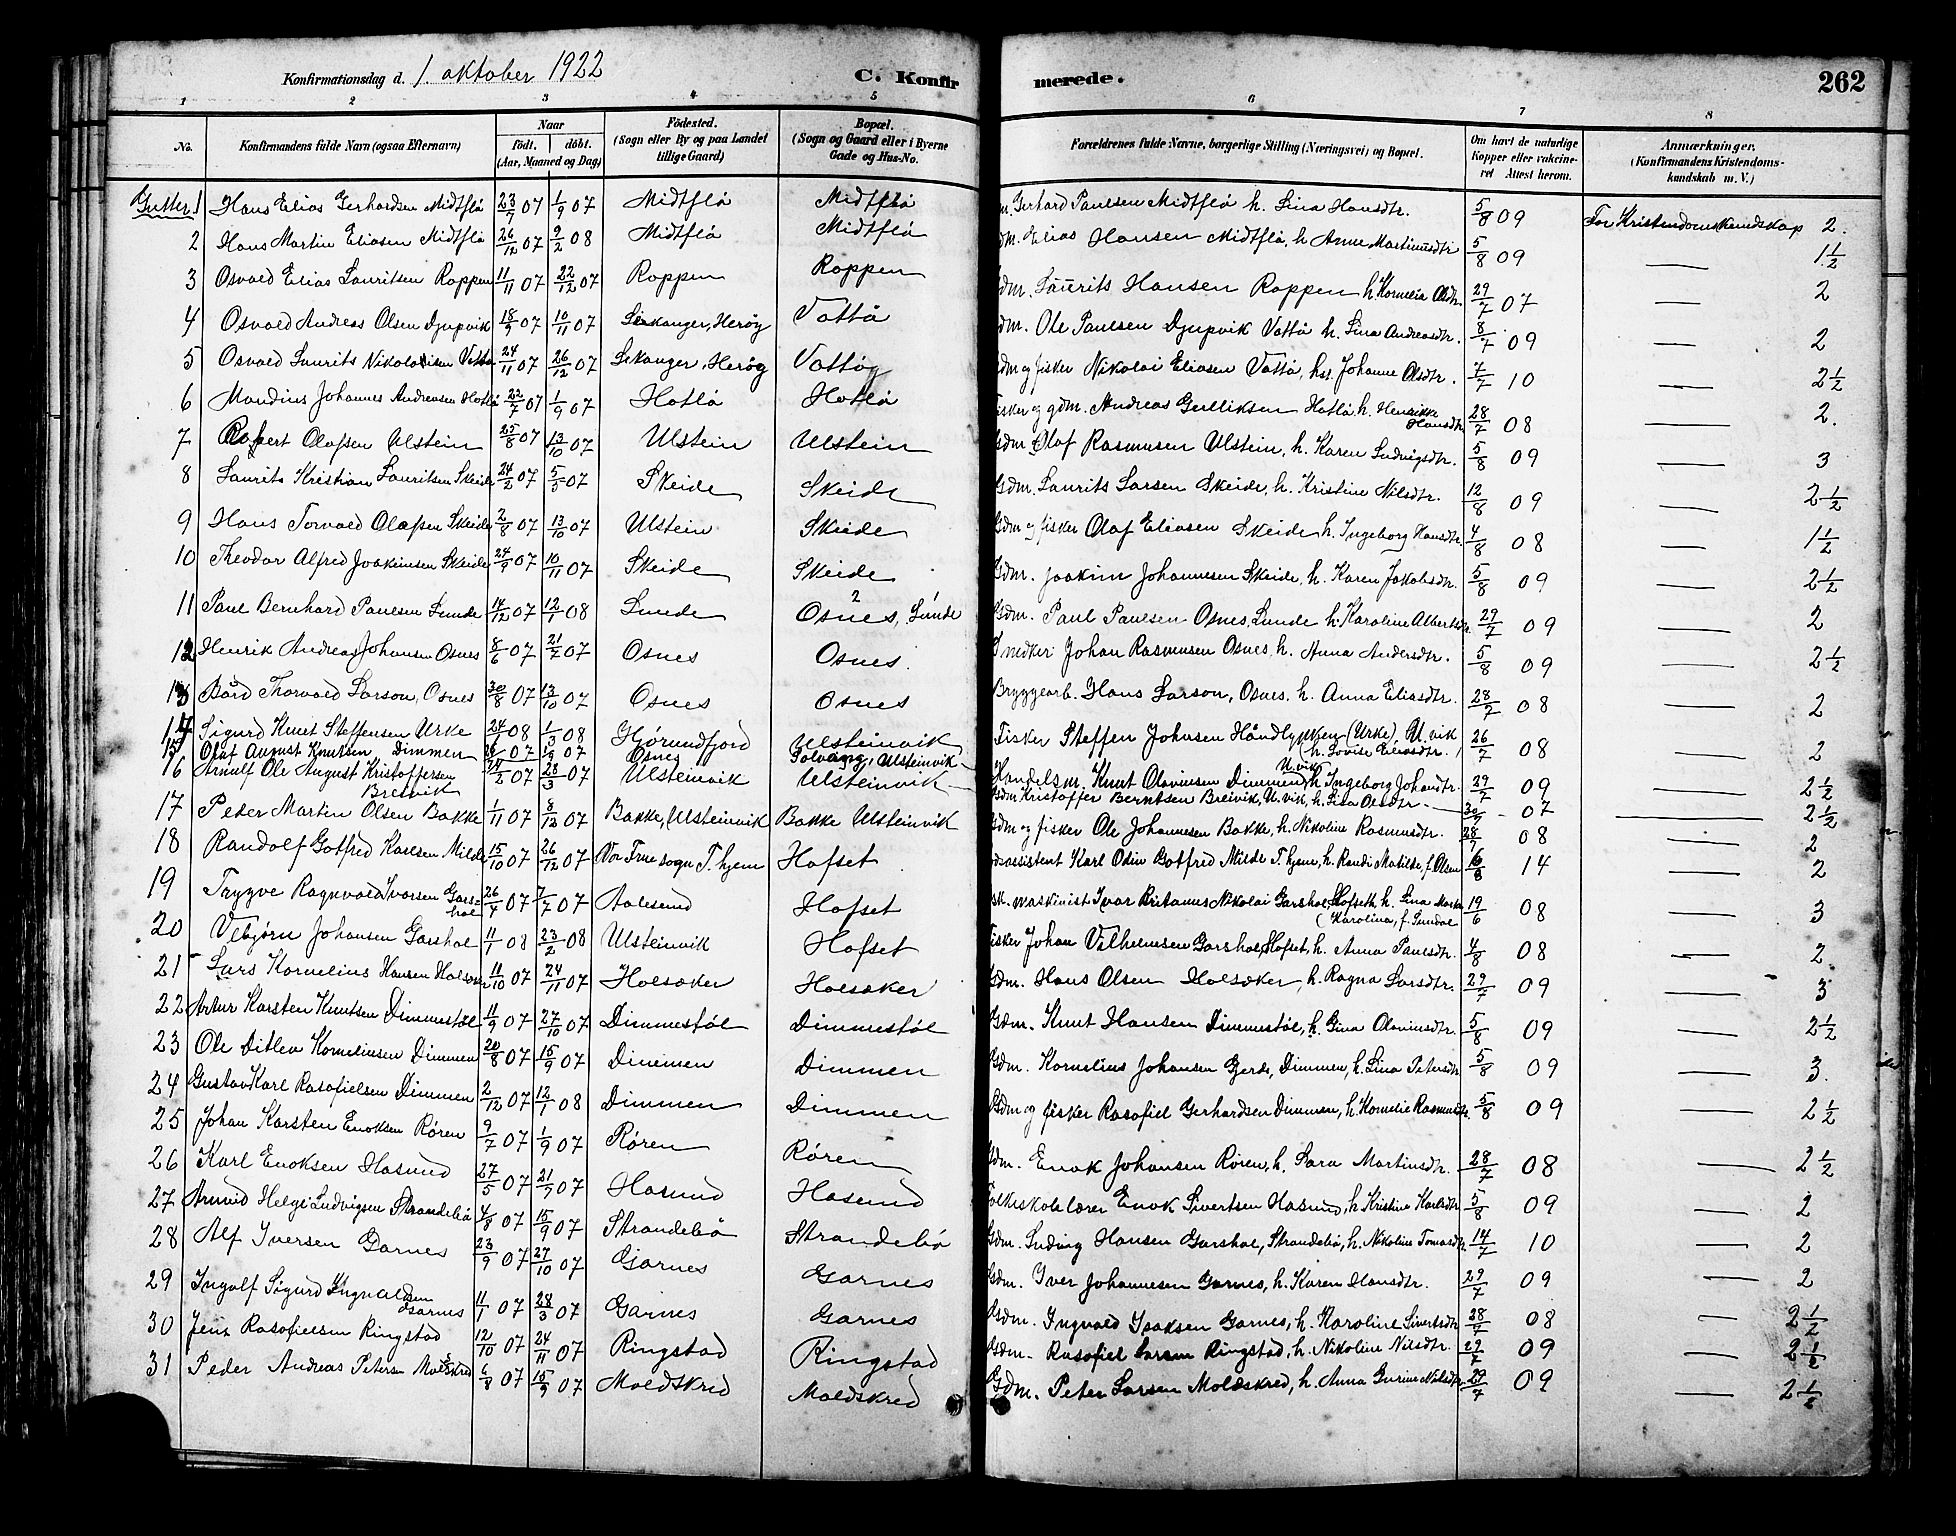 Konfirmationsdag d. 1. oktober 1922
C. Konfir
merede.
262
1 2 3 4 5 6 7 8
No.
Konfirmandens fulde Navn (ogsaa Efternavn)
Naar
født. døbt.
(Aar, Maaned og Dag)
Fødested.
(Sogn eller By og paa Landet tillige Gaard)
Bopæl.
(Sogn og Gaard eller i Byerne Gade og Hus-No.
Forældrenes fulde Navne, borgerlige Stilling (Næringsvei) og Bopæl.
Om havt de naturlige Kopper eller vakcineret Attest herom.
Anmærkninger.
(Konfirmandens Kristendomskundskab m. V.)
Gutter. 1 Hans Elias Gerhardsen Midtflø 23/7 07 1/9 07 Midtflø Midtflø Gerhard Paulsen Midtflø h. Lina Hansdtr. 5/8 09 For Kristendomskundskap 2.
2 Hans Martin Eliasen Midtflø 26/12 07 9/2 08 Midtflø Midtflø Gdm. Elias Hansen Midtflø, h. Anne Martinusdtr 5/8 09 — 1 1/2
3 Osvald Elias Lauritsen Roppen 11/11 07 22/12 07 Roppen Roppen Gdm. Laurits Hansen Roppen h. Kornelia Olsdtr. 29/7 07 — 2
4 Osvald Andreas Olsen Djupvik 18/9 07 10/11 07 Leikanger, Herøy Vattø Gdm. Ole Paulsen Djupvik Vattø h. Lina Andreasdtr. 8/7 09 — 2
5 Osvald Laurits Nikolaisen Vattø 24/11 07 26/12 07 Leikanger, Herøy Vattøy Gdm og fisker Nikolai Eliasen Vattø, hst. Johanne Olsdtr. 7/7 10 — 2 1/2
6 Mandius Johannes Andreasen Hatlø 22/7 07 1/9 07 Hatlø Hatlø Fisker og gdm. Andreas Hatlø h. Henrikke Hansdtr 28/7 08 — 2.
7 Robert Olafsen Ulstein 25/8 07 13/10 07 Ulstein Ulstein Gdm Olaf Rasmusen Ulstein, h. Karen Ludvigsdtr. 5/8 09 — 3
8 Laurits Kristian Lauritsen Skeide 24/2 07 5/5 07 Skeide Skeide Gdm. Laurits Larsen Skeide, h. Kristine Nilsdtr. 12/8 09 — 2 1/2
9 Hans Torvald Olafsen Skeide 2/8 07 13/10 07 Ulstein Skeide Gdm og fisker Olaf Eliasen Skeide h. Ingeborg Hansdtr. 4/8 08 — 1 1/2
10 Theodor Alfred Joakimsen Skeide 24/9 07 10/11 07 Skeide Skeide Gdm. Joakim Johannesen Skeide, h. Karen Jakobsdtr. 5/8 09 — 2 1/2
11 Paul Bernhard Paulsen Lunde 14/12 07 12/1 08 Lunde Osnes, Lunde Gdm. Paul Paulsen Osnes, Lunde h. Karoline Albertsdtr. 29/7 09 — 2
12 Henrik Andreas Johansen Osnes 8/6 07 21/7 07 Osnes Osnes. Snedker Johan Rasmusen Osnes, h. Anna Andersdtr. 5/8 09 — 2 1/2
13 Bård Thorvald Larson, Osnes 30/8 07 13/10 07 Osnes Osnes Bryggearb. Hans Larson, Osnes. h. Anna Eliasdtr. 28/7 08 — 2
14 Sigurd Knut Steffensen Urke 24/1 08 1/3 08 Hjørundfjord Ulsteinvik Fisker Steffen Johnsen Håndlykken (Urke), U.vik h. Lovise Eliasdtr. 26/7 08 — 2
15 Olaf August Knutsen Dimmen 07 07 Osnes Solvang, Ulsteinvik Handelsm. Knut Olavinsen Dimmen, U.vik h. Ingeborg Johandtr. 29/7 09 — 2 1/2
16 Arnulf Ole August Kristoffersen Breivik 24/2 07 28/3 07 Ulsteinvik Ulsteinvik Gdm Kristoffer Berntsen Breivik, U.vik, h. Lina Olsdtr 30/7 07 — 2 1/2
17 Peder Martin Olsen Bakke 1/11 07 8/12 07 Bakke, Ulsteinvik Bakke Ulsteinvik Gdm og fisker Ole Johannesen Bakke, h. Nikoline Rasmusdtr. 28/7 08 — 2
18 Randolf Gotfred Karlsen Milde 15/10 07 26/12 07 Vor Frue sogn T.hjem Hofset Karl Odin Gotfred Milde T.hjem, h. Randi Matilde, f. Olsen 14 — 2
19 Trygve Ragnvald Ivarsen Garshol 26/4 07 7/7 07 Aalesund Hofset maskinist Ivar Britanus Nikolai Garshol, Hofseth h. Lina Karolina, f. Sundal 19/6 08 — 3
20 Vebjørn Johansen Garshol 11/1 08 23/2 08 Ulsteinvik Hofset Fisker Johan Vilhelmsen Garshol, Hofset, h. Anna Paulsdtr. 4/8 08 — 2.
21 Lars Kornelius Hansen Holsaker 11/10 07 24/11 07 Holsaker Holsaker Gdm. Hans Olsen Holsaker, h. Ragna Larsdtr. 29/7 09 — 3
22 Artur Karsten Knutsen Dimmestøl 11/9 07 27/10 07 Dimmestøl Dimmestøl Gdm. Knut Hansen Dimmestøl, h. Gina Olavinsdtr. 5/8 09 — 2 1/2
23 Ole Ditlev Korneliusen Dimmen 20/8 07 15/9 07 Dimmen Dimmen Gdm. Kornelius Johansen Gjerde, Dimmen, h. Lina Petersdtr 5/8 09 — 3.
24 Gustav Karl Rasofielsen Dimmen 2/12 07 12/1 08 Dimmen Dimmen Gdm og fisker Rasofiel Gerhardsen Dimmen, h. Kornelie Rasmusdtr. 5/8 09 — 2 1/2
25 Johan Karsten Enoksen Røren 9/7 07 1/9 07 Røren Røren Gdm. Enok Johansen Røren, h. Sara Martinsdtr. 28/7 08 — 2 1/2
26 Karl Enoksen Hasund 27/5 07 21/7 07 Hasund Hasund Folkeskolelærer Enok Sivertsen Hasund, h. Kristine Karlsdtr 5/8 09 — 2
27 Arnvid Helge Ludvigsen Strandebø 4/8 07 15/9 07 Strandebø Strandebø Gdm. Ludvig Hansen Garshol, Strandebø, h. Nikoline Tomasdtr. 14/7 10 — 2
28 Alf Iversen Garnes 23/9 07 27/10 07 Garnes Garnes Gdm. Iver Johannesen Garnes, h. Karen Hansdtr. 29/7 09 — 2
29 Ingolf Sigurd Ingvaldsen Garnes 11/1 07 28/3 07 Garnes Garnes Gdm. Ingvald Isaksen Garnes, h. Karoline Sivertsdtr 28/7 08 — 2 1/2
30 Jens Rasofielsen Ringstad 12/10 07 24/11 07 Ringstad Ringstad Gdm. Rasofiel Larsen Ringstad, h. Nikoline Nilsdtr. 29/7 09 — 2 1/2
31 Peder Andreas Petersen Moldskred 6/8 07 15/9 07 Moldskred Moldskred Gdm. Peter Larsen Moldskred, h. Anna Gurine Nilsdtr 29/7 09 — 2 1/2